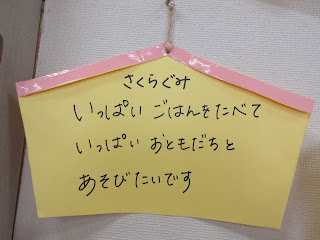 さくらぐみ
いっぱい ごはんをたべて
いっぱい おともだちと
あそびたいです